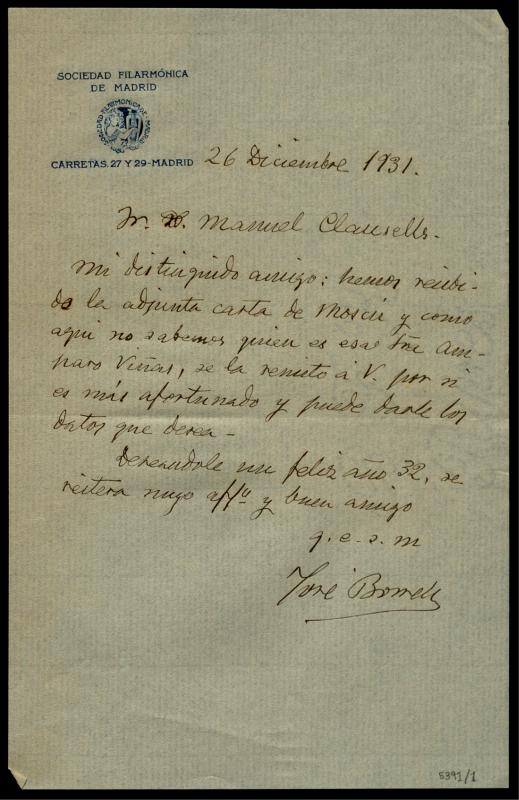 SOCIEDAD FILARMÓNICA
DE MADRID
SOCIEDAD FILARMONICA DE MADRID
CARRETAS, 27 Y 29-MADRID
26 Diciembre 1931.
Sr. D. Manuel Clausells.
Mi distinguido amigo: hemos recibi-
do la adjunta carta de Moscú y como
aqui no sabemos quien es esa Srta Am-
paro Viñas, se la remito á V. por si
es más afortunado y puede darle los
datos que desea -
Deseandole un feliz año 32, se
reitera suyo affº y buen amigo
q. e. s. m
José Borrell
5391/1